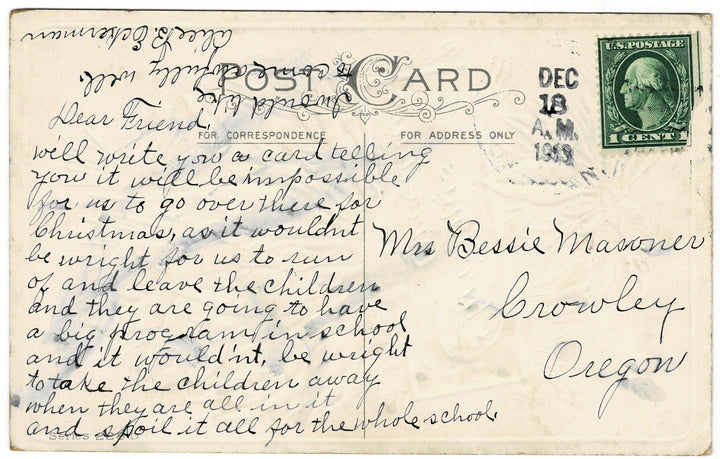 POST CARD
FOR CORRESPONDENCE
FOR ADDRESS ONLY
U.S. POSTAGE
1 CENT 1
DEC
18
A.M.
1913
Dear Friend,
will write you a card telling
you it will be impossible
for us to go over there for
Christmas, as it wouldn't
be wright for us to run
of and leave the children
and they are going to have
a big program in school
and it would'nt, be wright
to take the children away
when they are all in it
and spoil it all for the whole school.
I would like
to come awfully well.
Alice B. Eckerman
Mrs Bessie Masoner
Crowley
Oregon
Series